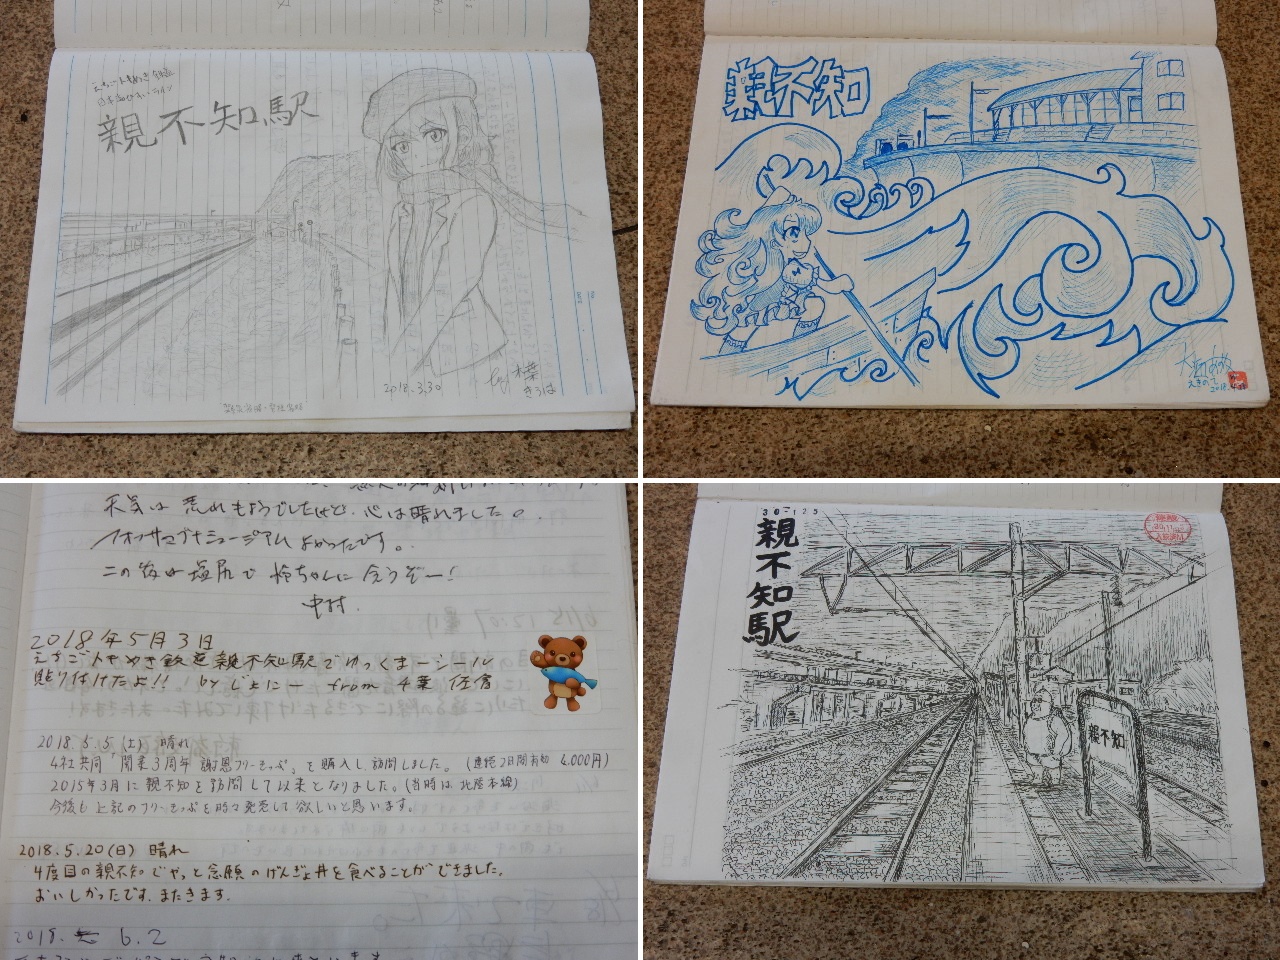 えちごトキめき鉄道
日本海ひすいライン
親不知駅
2018.3.30
by 木葉
親不知
2018.
天気は荒れもようでしたけど、心は晴れました。
フォッサマグナミュージアムよかったです。
この後は塩尻で 怜ちゃんに会うぞー!
中村.
2018年5月3日
えちごトキめき鉄道親不知駅でゆっくまーシール
貼り付けたよ!! by じょにー from 千葉 佐倉
2018.5.5.(土) 晴れ
4社共同「開業3周年 謝恩フリーきっぷ」を購入し訪問しました。(連続2日間有効 4.000円)
2015年3月に親不知を訪問して以来となりました。(当時は北陸本線)
今後も上記のフリーきっぷを時々発売して欲しいと思います。
2018.5.20(日) 晴れ
4度目の親不知じゃっと念願のげんぎょ丼を食べることができました。
おいしかったです.またきます.
2018. 6.2
30-125
親不知駅
親不知